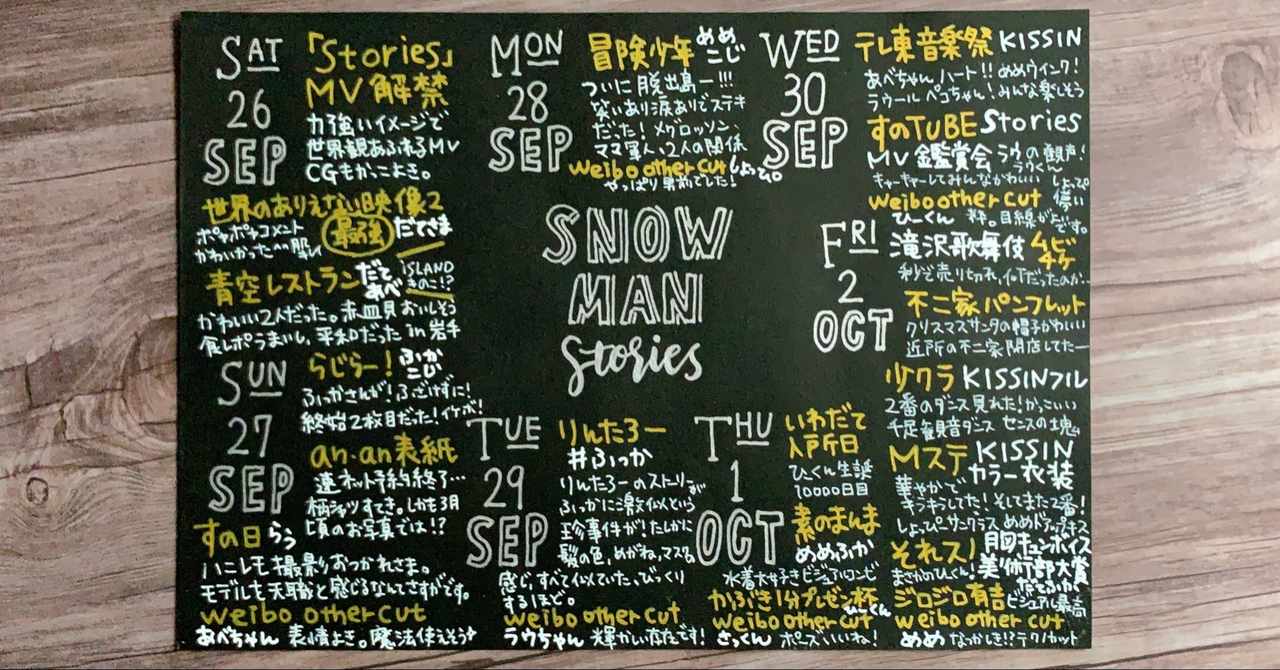 SAT
26
SEP
「Stories」
MV解禁
力強いイメージで
世界観あふれるMV
CGもかっこよき。
世界のありえない映像2
ポヤポヤコメント
かわいかった^^
最強
だてさま
青空レストラン
だて
あべ
ISLAND
きのこ!?
かわいい2人だった。赤皿貝おいしそう
食レポうまいし、平和だった in 岩手
SUN
27
SEP
らじらー!
ふか
こじ
ふっかさんが!ふざけずに!
終始2枚目だった!イケボ!
an・an 表紙
速ネット予約終了…
柄シャツすてき。しかも3月
頃のお写真では!?
すの日 らう
ハニレモ撮影おつかれさま。
モデルも天職と感じるなんてさすがです。
weibo other cut
あべちゃん 表情よき。魔法使えそう
MON
28
SEP
冒険少年
めめ
こじ
ついに脱出島ー!!!
笑いあり涙ありでステキ
だった!メグロッソン、
ママ軍人、2人の関係
weibo other cut しょっぴ。
やっぱり男前でした!
SNOW
MAN
Stories
TUE
29
SEP
りんたろー
#ふっか
りんたろーのストーリーが
ふっかに激似という
珍事件が!たしかに
髪の色、めがね、マスクの
感じ、すべて似ていた、びっくり
するほど。
weibo other cut
ラウちゃん 輝かしい存在です!
WED
30
SEP
テレ東音楽祭 KISSIN
あべちゃん ハート!!めめウインク!
ラウール ペコちゃん!みんな楽しそう
すのTUBE Stories
MV鑑賞会 ラウの歓声!
ラウくん
キャーキャーしてみんなかわいい しょっぴ
weibo other cut 儚い
ひーくん 粋。目線がよいです。
THU
1
OCT
いわだて
入所日
ひーくん生誕
10000日目
素のまんま
めめふか
水着大好きビジュアルコンビ
かぶき1分プレゼン杯
ひーくん
weibo other cut
さっくん ポーズいいね!
FRI
2
OCT
滝沢歌舞伎 ムビ
チケ
秒で売り切れ、何だったのか…
不二家パンフレット
クリスマスサンタの帽子かわいい
近所の不二家閉店してたー
少クラ KISSINフル
2番のダンス見れた!かっこいい
千手観音ダンス センスの塊
Mステ KISSIN
カラー衣装
華やかで
キラキラしてた!そしてまた2番!
しょっぴサングラス めめドアップステキ
それスノ 胸キュンボイス
まさかのひーくん! 美術部大賞
だてふっか
ジロジロ有吉 ビジュアル最高
weibo other cut
めめ なつかしき!?テクノカット